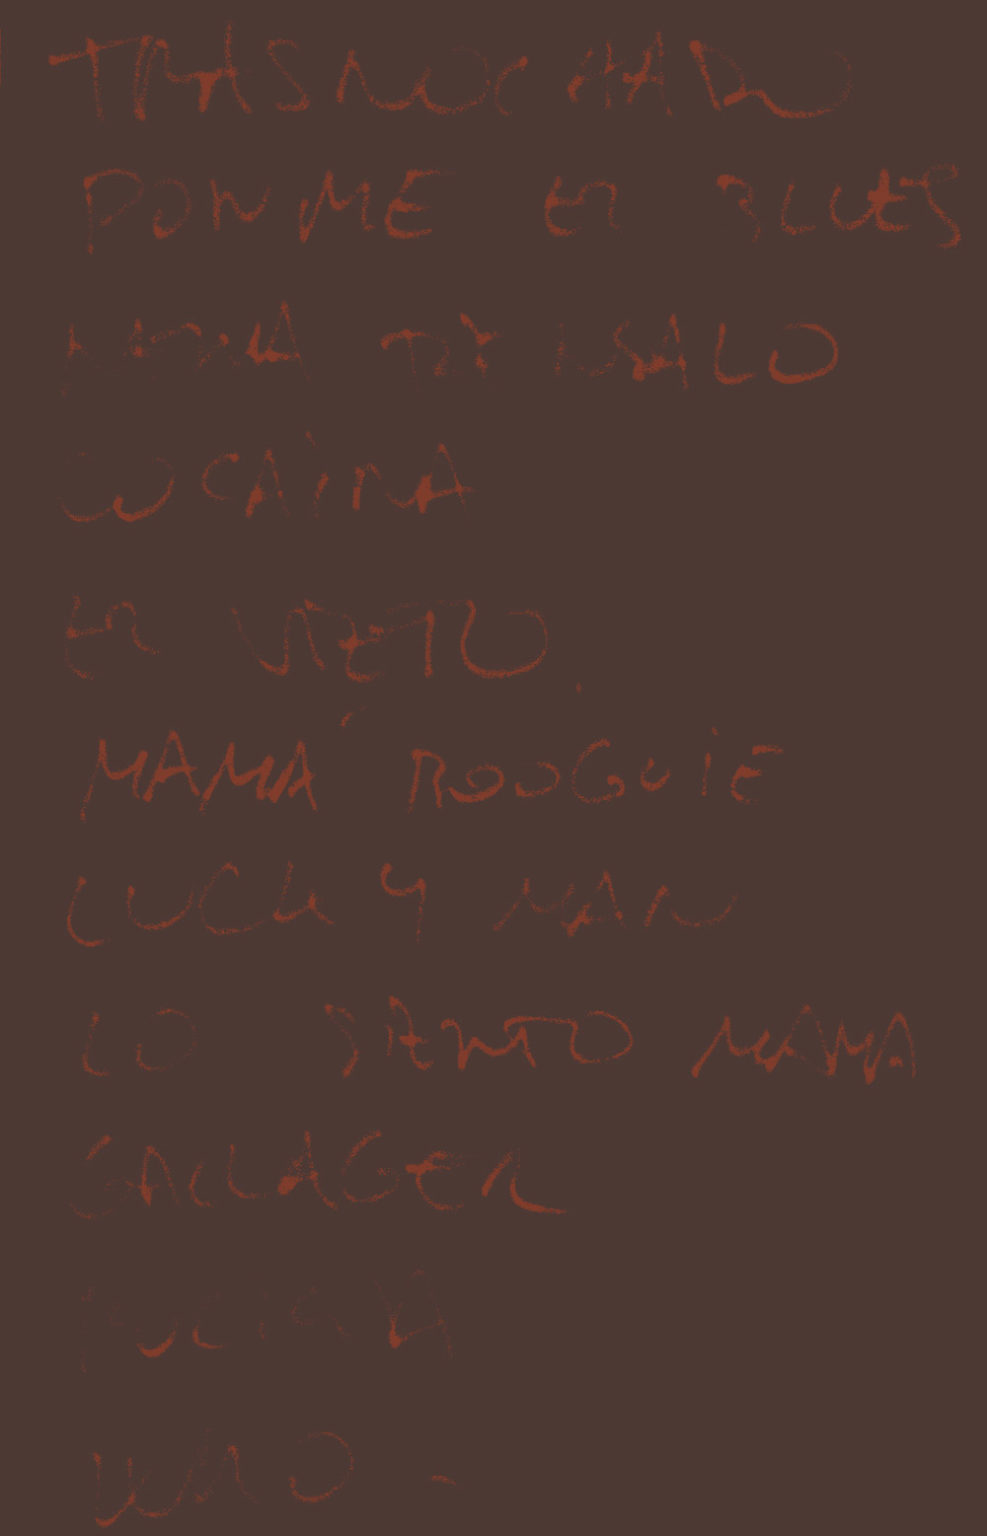 TRASNOCHADO
PONME ER BLUES
NENA DEJALO
COCAINA
ER VIETO.
MAMÁ ROOGUIE
LUCKY MAN
LO SIENTO MAMA
GALLAGER